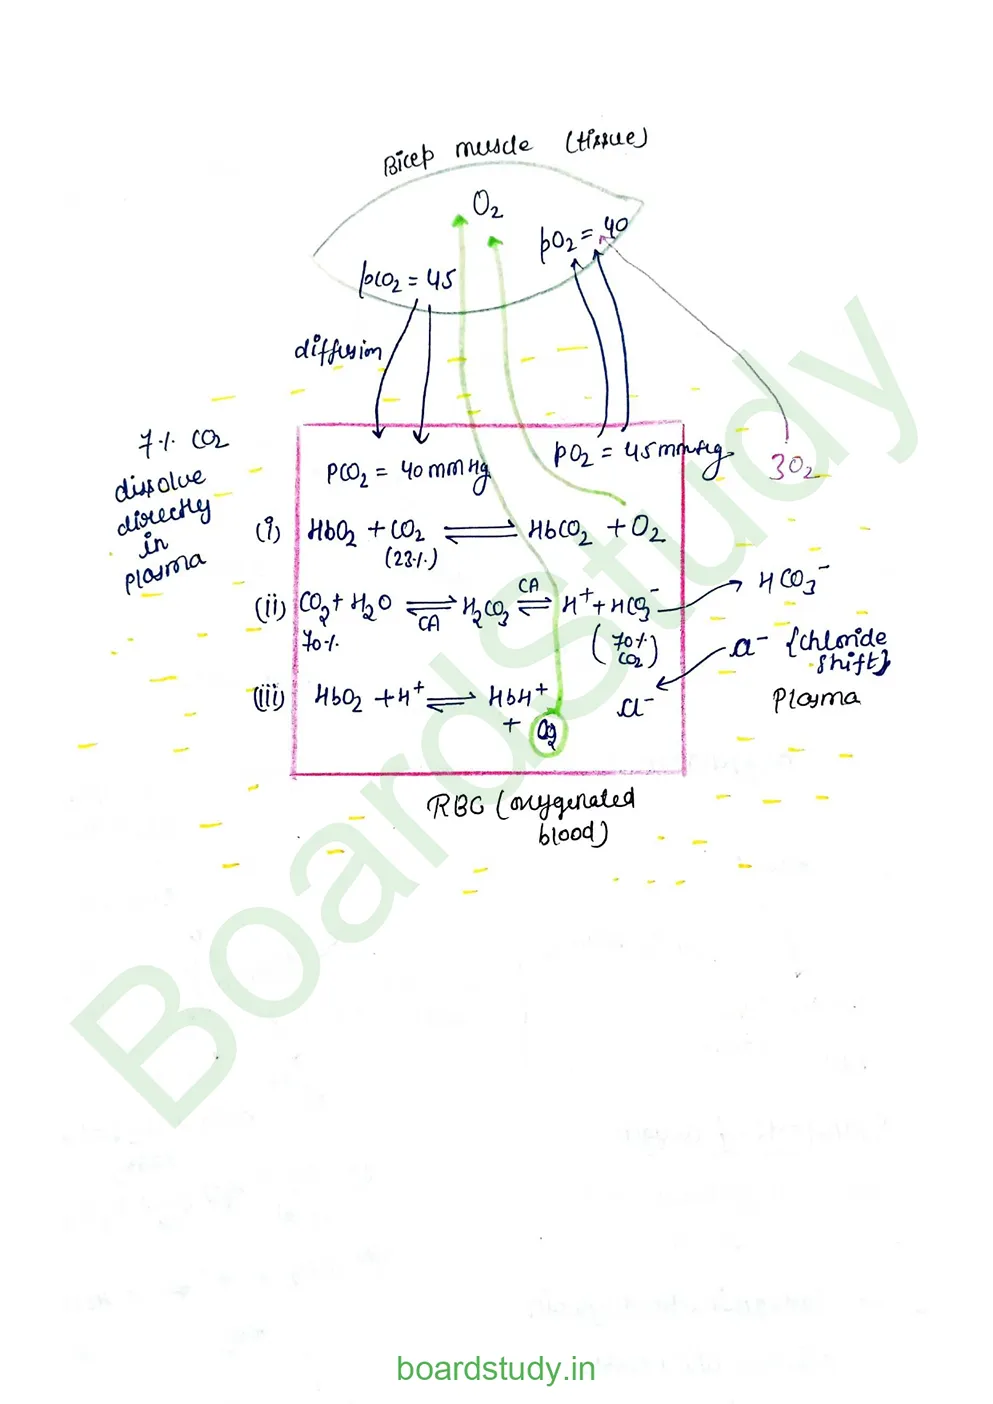 Bicep muscle (tissue)
O₂
pO₂ = 40
pCO₂ = 45
diffusion
7% CO₂
dissolve
directly
in
plasma
PCO₂ = 40 mm Hg
PO₂ = 45 mmHg
3O₂
(i) HbO₂ + CO₂ ⇌ HbCO₂ + O₂
(23%)
(ii) CO₂ + H₂O ⇌ H₂CO₃ ⇌ H⁺ + HCO₃⁻ → HCO₃⁻
CA
CA
70%
(70% CO₂)
Cl⁻ {chloride
shift}
Plasma
(iii) HbO₂ + H⁺ ⇌ HbH⁺
+ O₂
Cl⁻
RBC (oxygenated
blood)
BoardStudy
boardstudy.in